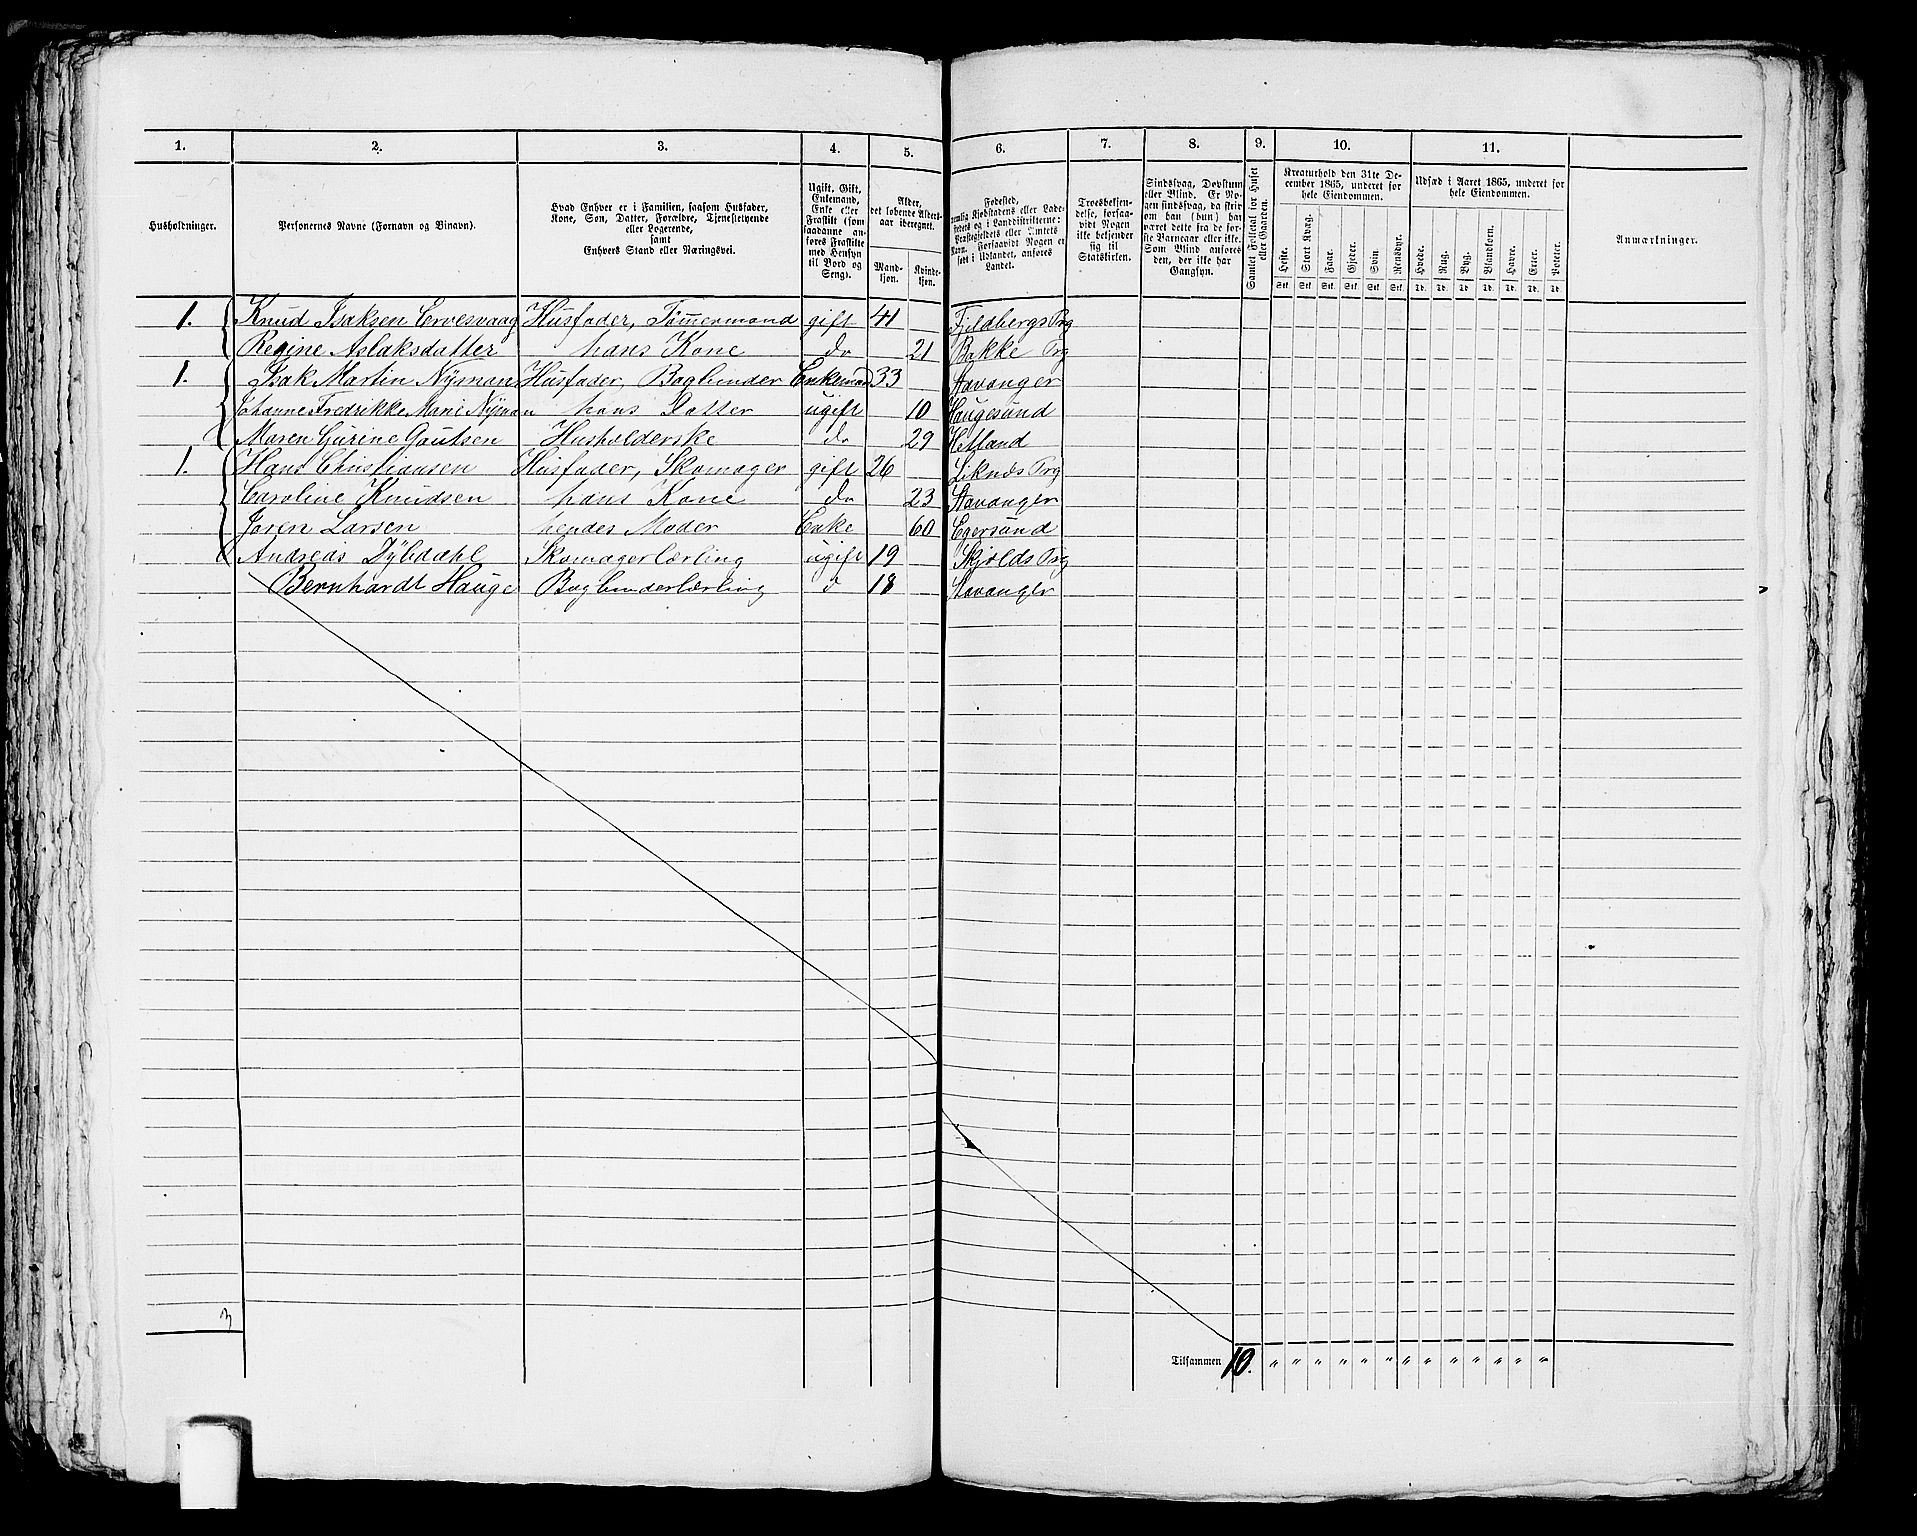 1. 2. 3. 4. 5. 6. 7. 8. 9. 10. 11.
Husholdninger.
Personernes Navne (Fornavn og Binavn).
Hvad Enhver er i Familien, saasom Husfader,
Kone, Søn, Datter, Forældre, Tjenestetyende
eller Logerende,
samt
Enhvers Stand eller Næringsvei.
Ugift, Gift,
Enkemand,
Enke eller
Fraskilt (som
saadanne an-
føres Fraskilte
med Hensyn
til Bord og
Seng).
Alder,
det løbende Alders-
aar iberegnet.
Mand-
kjøn.
Kvinde-
kjøn.
Fødested,
nemlig Kjøbstadens eller Lade-
stedets og i Landdistrikterne:
Præstegjeldets eller Amtets
Navn. Forsaavidt Nogen er
født i Udlandet, anføres
Landet.
Troesbekjen-
delse, forsaa-
vidt Nogen
ikke bekjender
sig til
Statskirken.
Sindssvag, Døvstum
eller Blind. Er No-
gen sindssvag, da skriv
om han (hun) har
været dette fra de før-
ste Barneaar eller ikke.
Som Blind anføres
den, der ikke har
Gangsyn.
Samlet Folketal for Huset
eller Gaarden.
Kreaturhold den 31te De-
cember 1865, underet for
hele Eiendommen.
Heste. Stort Kvæg. Faar. Gjeder. Svin. Rensdyr.
Stk. Stk. Stk. Stk. Stk. Stk.
Udsæd i Aaret 1865, underet for
hele Eiendommen.
Hvede. Rug. Byg. Blandkorn. Havre. Erter. Poteter.
Td. Td. Td. Td. Td. Td. Td.
Anmærkninger.
1. Knud Isaksen Ervesvaag Husfader, Tømmermand gift 41 Fjeldbergs Prg
Regine Aslaksdatter hans Kone do 21 Bakke Prg
1. Isak Martin Nyman Husfader, Bogbinder Enkemand 33 Stavanger
Johanne Fredrikke Marie Nyman hans Datter ugift 10 Haugesund
Maren Gurine Gautsen Husholderske do 29 Hetland
1. Hans Christiansen Husfader, Skomager gift 26 Liknæs Prg
Caroline Knudsen hans Kone do 23 Stavanger
Joren Larsen hendes Moder Enke 60 Egersund
Andreas Dybdahl Skomagerlærling ugift 19 Skjolds Prg
Bernhardt Hauge Bogbinderlærling d 18 Stavanger
3
Tilsammen 10. " " " " " " " " " " " " "